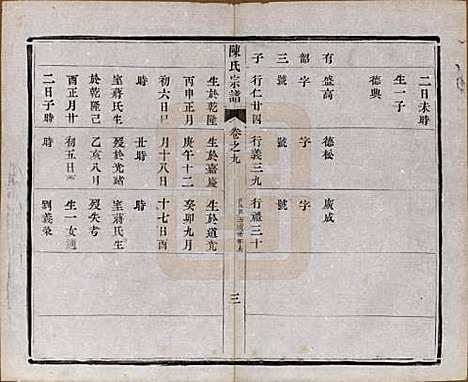 二日未時
生一子
德興
有盛高 德松 廣成
韶字 字 字
三號 號 號
子行仁廿四 行義三九 行禮三十
陳氏宗譜 卷之九 三
生於乾隆 生於嘉慶 生於道光
丙申正月 庚午十二 癸卯九月
初六日巳 月十八日 十七日寅
時 丑時 時
室蔣氏生 歿於光緒 室蔣氏生
於乾隆己 乙亥八月 歿失考
酉正月廿 初五日 生一女適
二日子時 劉義榮